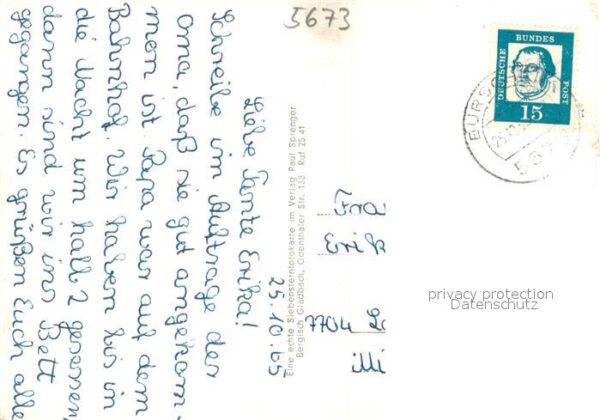 5673
25.10.65
Liebe Tante Erika!
Schreibe im Auftrage der
Oma, daß sie gut angekom-
men ist. Papa war auf dem
Bahnhof. Wir haben bis in
die Nacht um halb 2 gesessen
dann sind wir ins Bett
gegangen. Es grüßen Euch alle
Eine echte Siebensterntotokarte im Verlag Paul Sprenger
Bergisch Gladbach, Odenthaler Str. 138 Ruf 25 41
DEUTSCHE BUNDES POST
15
BURSC
567
Frau
Erik
7704
privacy protection
Datenschutz